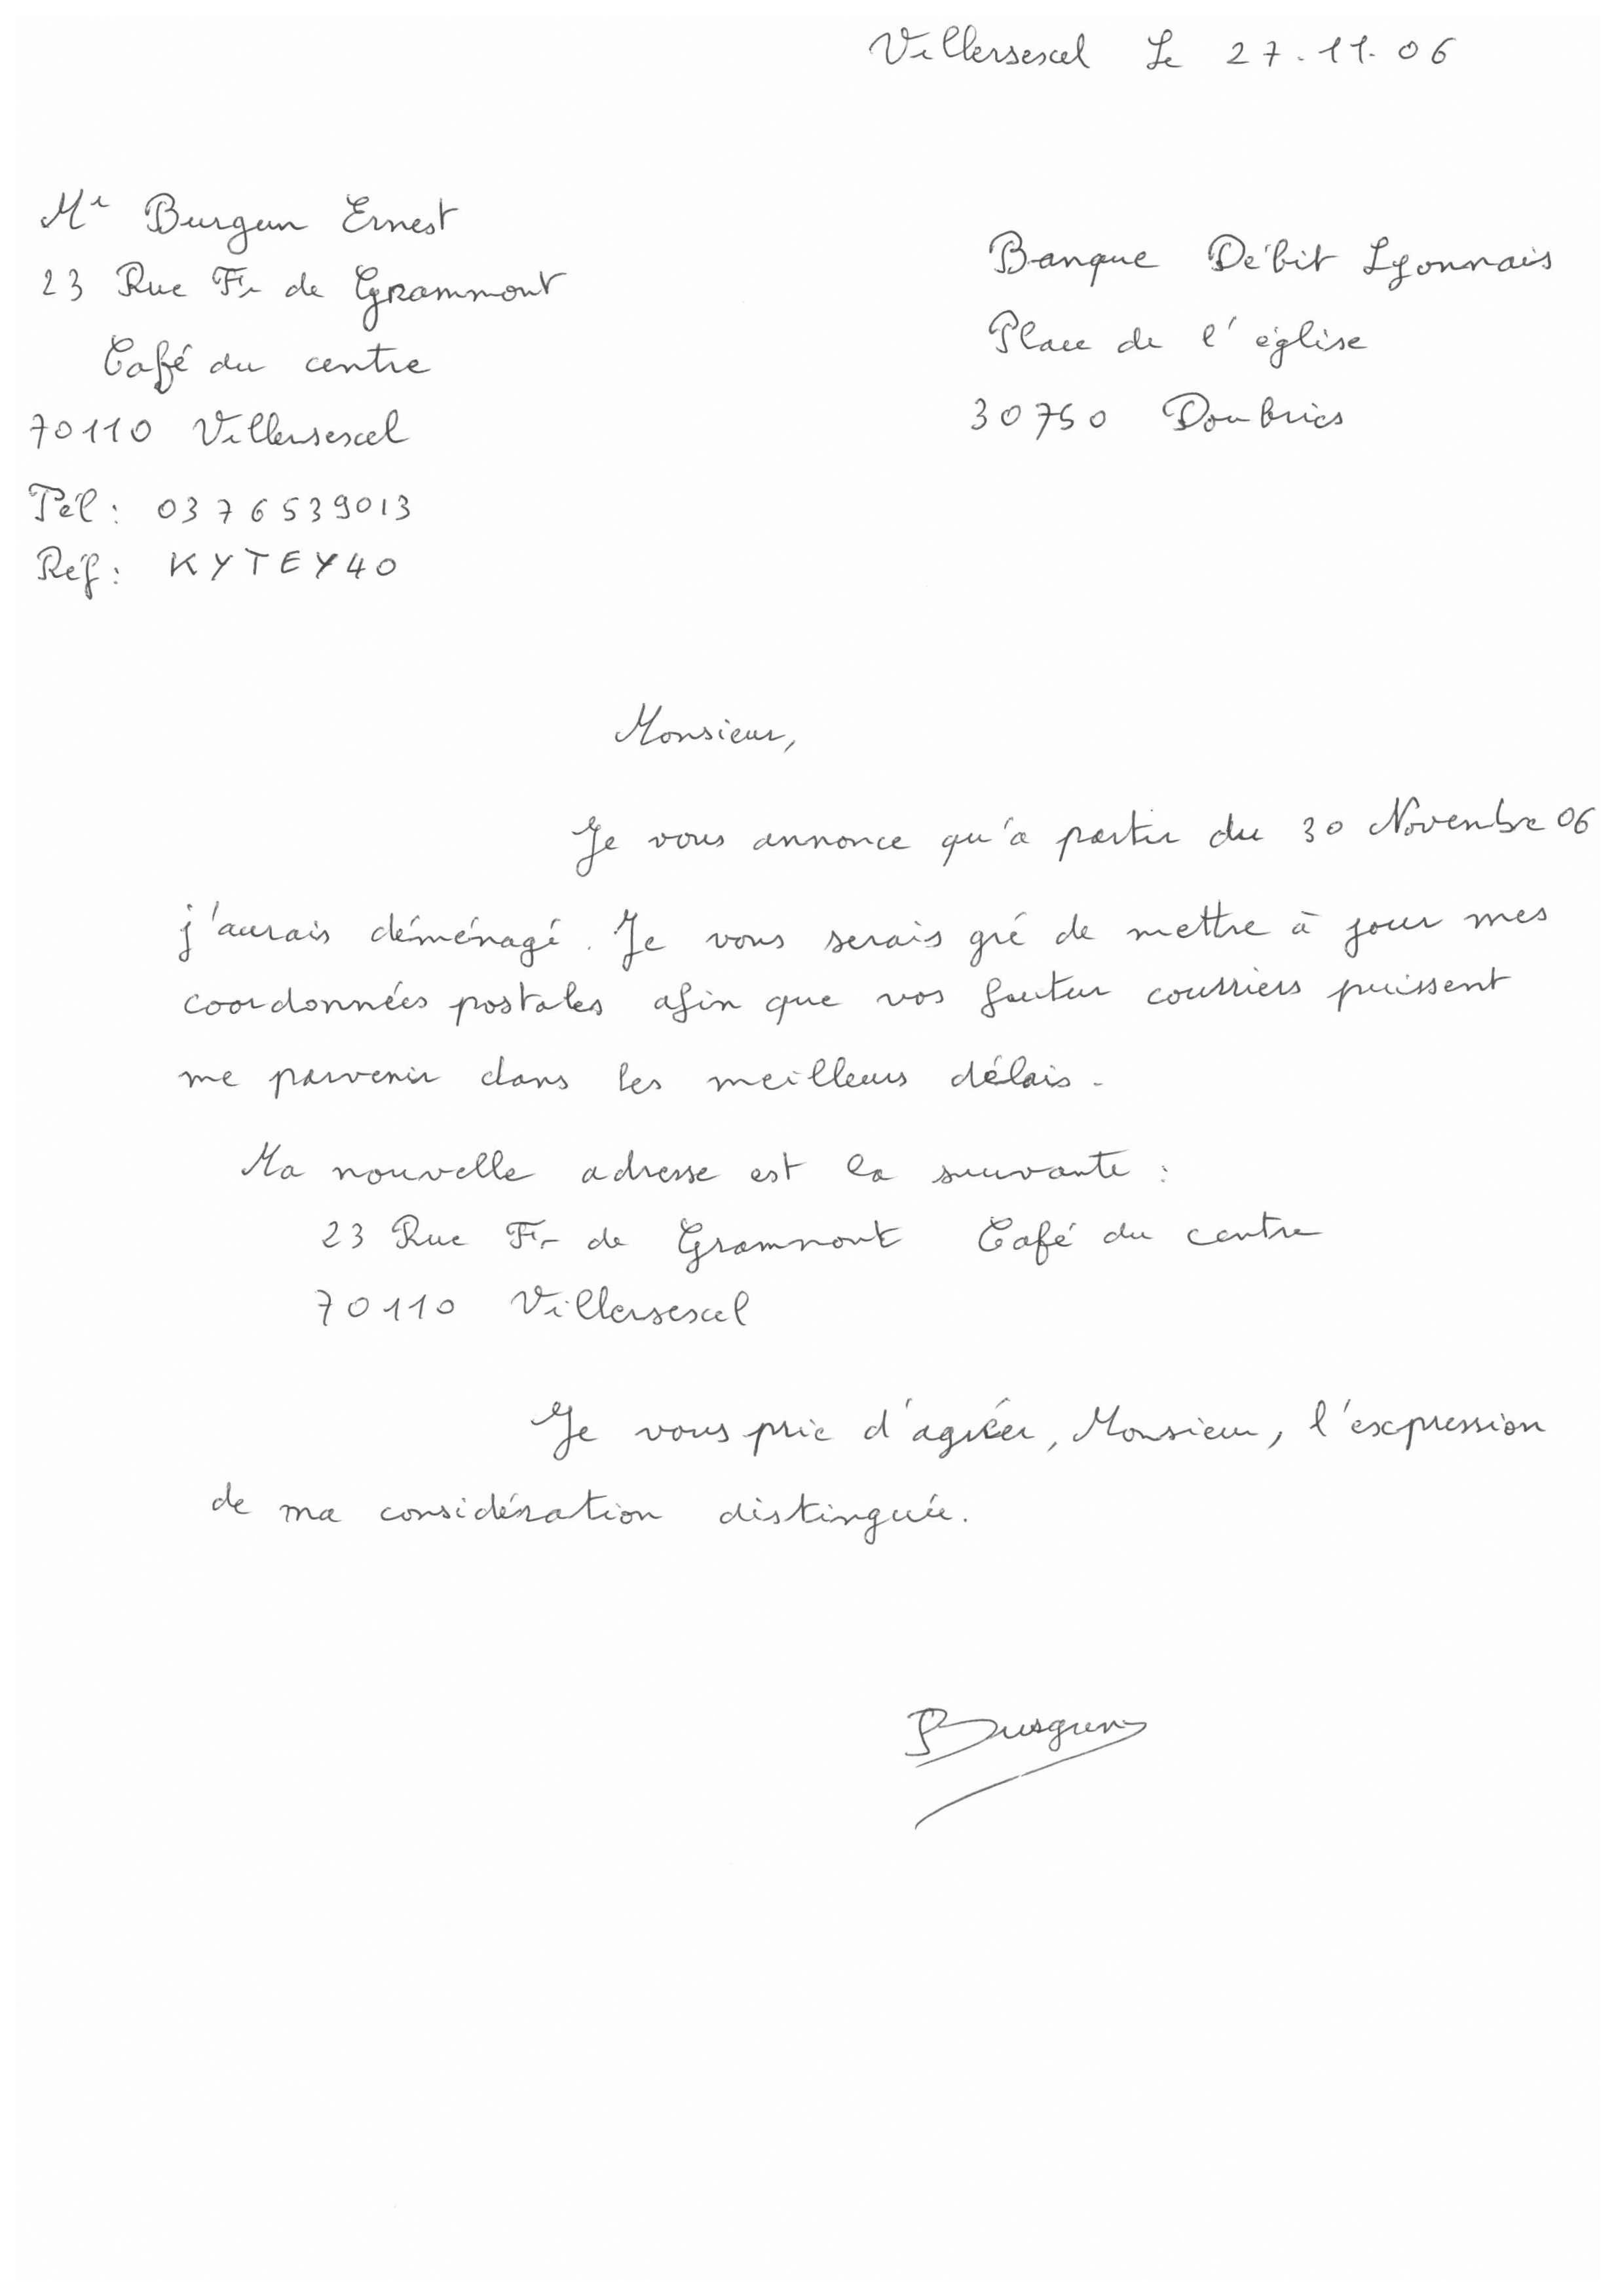 Villersexel Le 27.11.06
Mr Burgun Ernest
23 Rue Fr de Grammont
Café du centre
70110 Villersexel
Tél : 0376539013
Réf : KYTEY40
Banque Débit Lyonnais
Place de l'église
30750 Dourbies
Monsieur,
Je vous annonce qu'a partir du 30 Novembre 06
j'aurais déménagé. Je vous serais gré de mettre à jour mes
coordonnées postales afin que vos futur courriers puissent
me parvenir dans les meilleurs délais.
Ma nouvelle adresse est la suivante :
23 Rue Fr de Grammont Café du centre
70110 Villersexel
Je vous prie d'agréer, Monsieur, l'expression
de ma considération distinguée.
Burgun